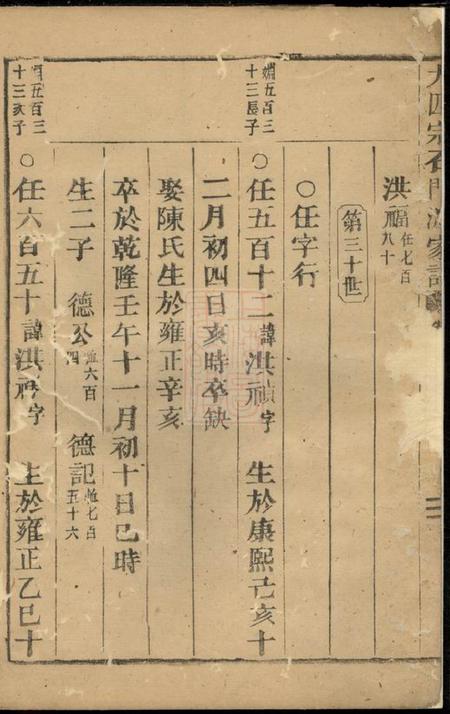 大四宗石門
洪福任七百八十
第三十世
○任字行
嫺五百三十三長子
○任五百十二諱洪禎字 生於康熙己亥十
二月初四日亥時卒缺
娶陳氏生於雍正辛亥
卒於乾隆壬午十一月初十日巳時
生二子 德公六百四 德記七百五十六
五百三十三次子
○任六百五十諱洪字 生於雍正乙巳十